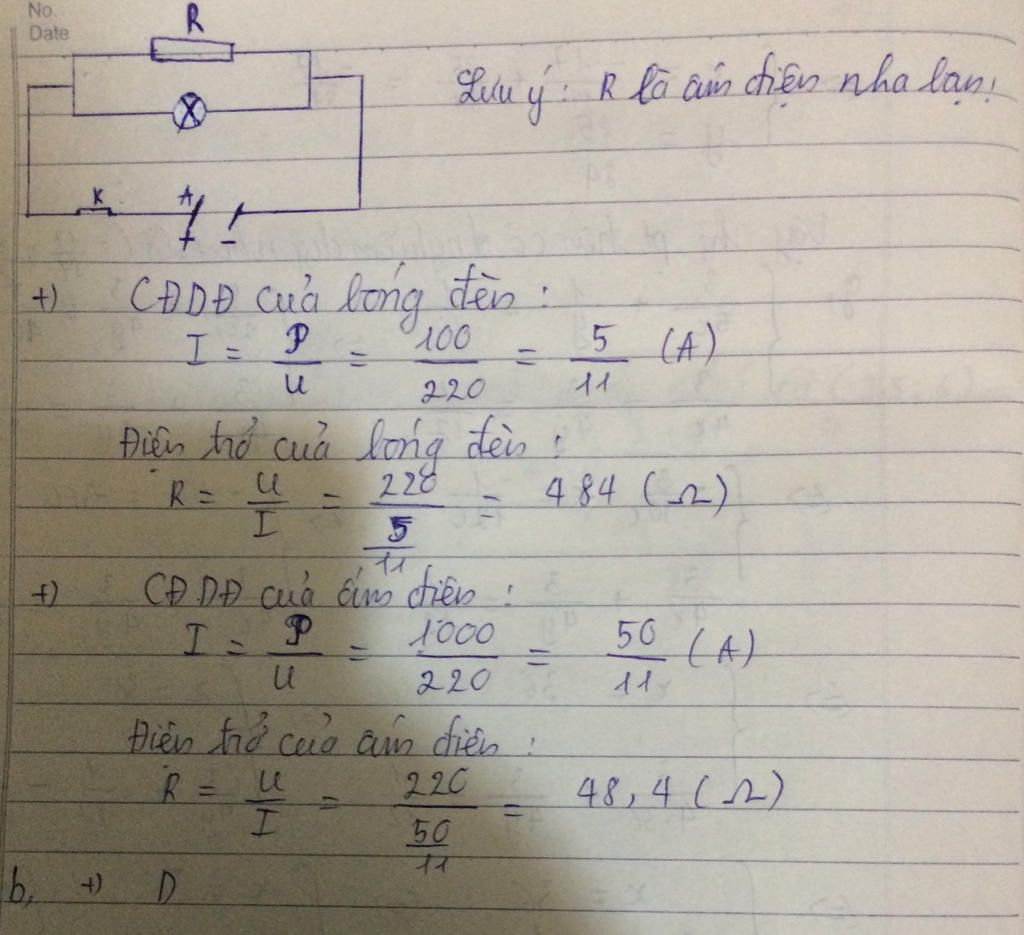 No.
Date
R
Lưu ý : R là ấm điện nha bạn!
K
A
+ -
+) CĐDĐ của bóng đèn :
I = P/U = 100/220 = 5/11 (A)
Điện trở của bóng đèn :
R = U/I = 220/(5/11) = 484 (Ω)
+) CĐDĐ của ấm điện :
I = P/U = 1000/220 = 50/11 (A)
Điện trở của ấm điện :
R = U/I = 220/(50/11) = 48,4 (Ω)
b, +) D